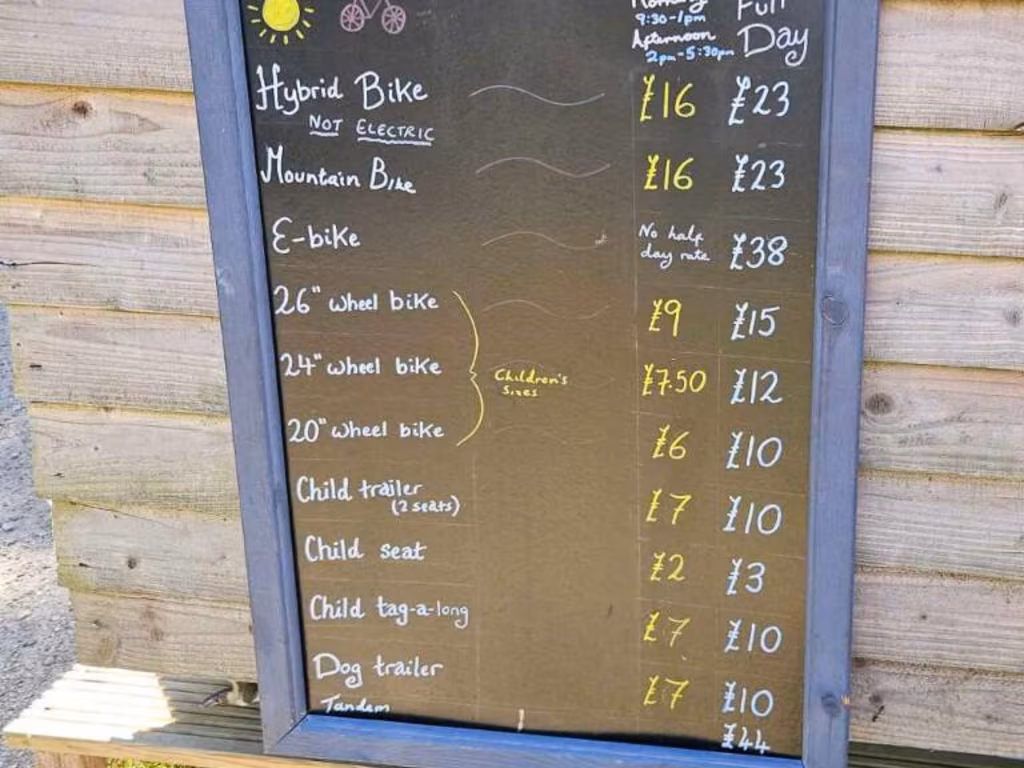 Morning Full
9:30-1pm
Afternoon Day
2pm-5:30pm
Hybrid Bike £16 £23
NOT ELECTRIC
Mountain Bike £16 £23
E-bike No half day rate £38
26" wheel bike £9 £15
24" wheel bike Children's sizes £7.50 £12
20" wheel bike £6 £10
Child trailer £7 £10
(2 seats)
Child seat £2 £3
Child tag-a-long £7 £10
Dog trailer £7 £10
Tandem £44